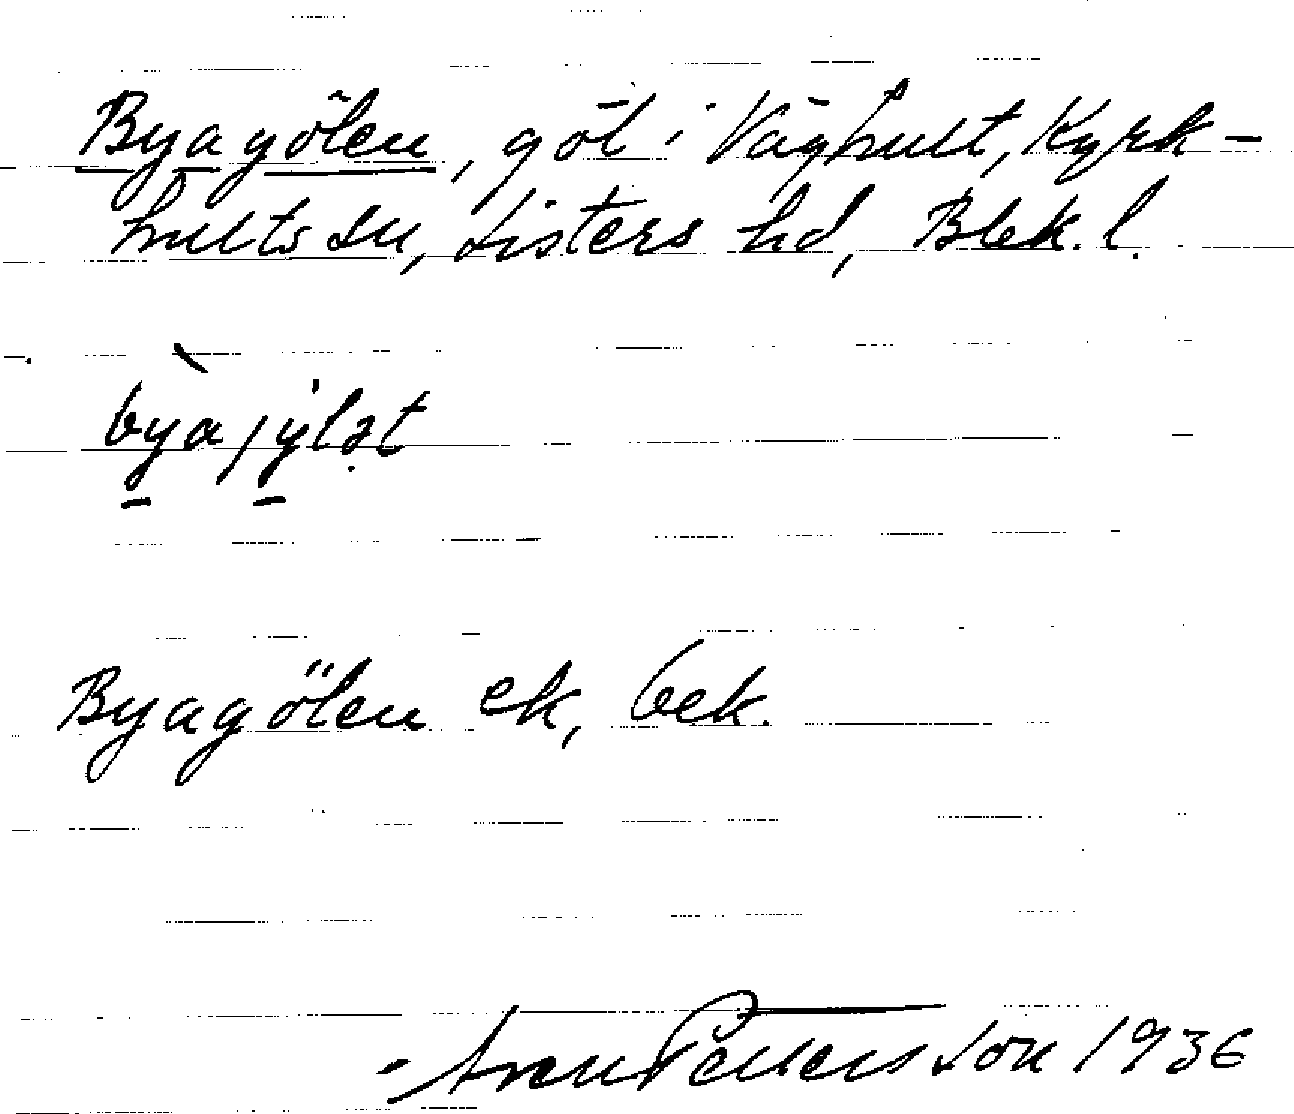 Byagölen, göl i Våghult, Kyrk-
hults sn, Listers hd, Blek. l.
Byagölen ek, bek.
Pettersson 1936